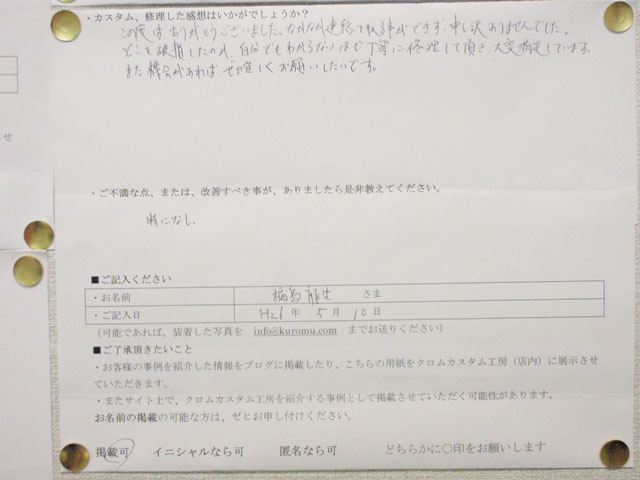 ・カスタム、修理した感想はいかがでしょうか？
この度はありがとうございました、なかなか連絡を取る事ができず、申し訳ありませんでした。
どこを破損したのか、自分でもわからないほど丁寧に修理して頂き、大変満足しています。
また機会があれば、ぜひ宜しくお願いしたいです。
・ご不満な点、または、改善すべき事が、ありましたら是非教えてください。
特になし.
■ご記入ください
・お名前 福島 さま
・ご記入日 H26年 5月 10日
（可能であれば、装着した写真を info@kuromu.com までお送りください）
■ご了承頂きたいこと
・お客様の事例を紹介した情報をブログに掲載したり、こちらの用紙をクロムカスタム工房（店内）に展示させ
ていただきます。
・またサイト上で、クロムカスタム工房を紹介する事例として掲載させていただく可能性があります。
お名前の掲載の可能な方は、ゼヒお申し付けください。
掲載可 イニシャルなら可 匿名なら可 どちらかに〇印をお願いします
せ